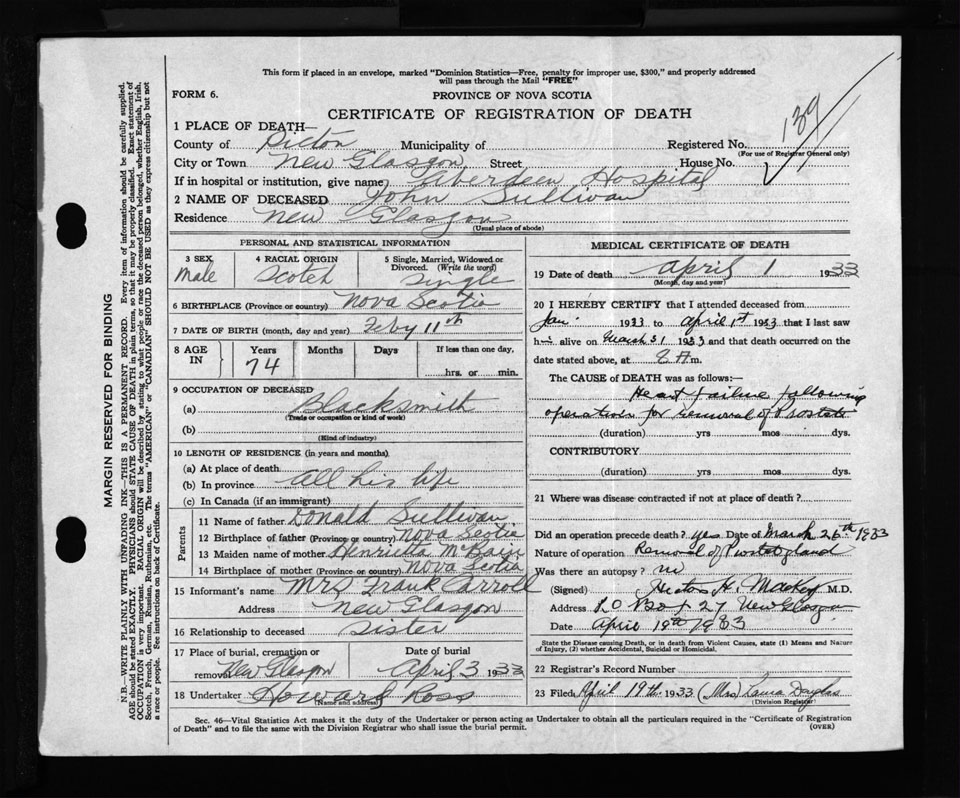 This form if placed in an envelope, marked "Dominion Statistics—Free, penalty for improper use, $300," and properly addressed
will pass through the Mail "FREE"
FORM 6.
PROVINCE OF NOVA SCOTIA
CERTIFICATE OF REGISTRATION OF DEATH
139
1 PLACE OF DEATH—
County of Pictou Municipality of Registered No.
(For use of Registrar General only)
City or Town New Glasgow Street House No.
If in hospital or institution, give name Aberdeen Hospital
2 NAME OF DECEASED John Sullivan
Residence New Glasgow
(Usual place of abode)
PERSONAL AND STATISTICAL INFORMATION
3 SEX
Male
4 RACIAL ORIGIN
Scotch
5 Single, Married, Widowed or
Divorced. (Write the word)
Single
6 BIRTHPLACE (Province or country) Nova Scotia
7 DATE OF BIRTH (month, day and year) Feby 11th
8 AGE
IN
Years
74
Months
Days
If less than one day,
hrs. or min.
9 OCCUPATION OF DECEASED
(a) Blacksmith
(Trade or occupation or kind of work)
(b)
(Kind of industry)
10 LENGTH OF RESIDENCE (in years and months)
(a) At place of death
(b) In province all his life
(c) In Canada (if an immigrant)
Parents
11 Name of father Donald Sullivan
12 Birthplace of father (Province or country) Nova Scotia
13 Maiden name of mother Henrietta McBain
14 Birthplace of mother (Province or country) Nova Scotia
15 Informant's name Mrs Frank Carroll
Address New Glasgow
16 Relationship to deceased Sister
17 Place of burial, cremation or
removal New Glasgow
Date of burial
April 3 1933
18 Undertaker Howard Ross
(Name and address)
MEDICAL CERTIFICATE OF DEATH
19 Date of death April 1 1933
(Month, day and year)
20 I HEREBY CERTIFY that I attended deceased from
Jan. 1933 to April 1st 1933 that I last saw
him alive on March 31 1933 and that death occurred on the
date stated above, at 8 A m.
The CAUSE of DEATH was as follows:—
Heart failure following
operation for removal of prostate
(duration) yrs mos dys.
CONTRIBUTORY
(duration) yrs mos dys.
21 Where was disease contracted if not at place of death?
Did an operation precede death? yes Date of March 26th 1933
Nature of operation Removal of Prostate gland
Was there an autopsy? no
(Signed) H. M.D.
Address P.O Box 27 New Glasgow
Date April 19th 1933
State the Disease causing Death, or in death from Violent Causes, state (1) Means and Nature
of Injury, (2) whether Accidental, Suicidal or Homicidal.
22 Registrar's Record Number
23 Filed April 19th 1933 (Mrs) Laura Douglas
(Division Registrar)
Sec. 46—Vital Statistics Act makes it the duty of the Undertaker or person acting as Undertaker to obtain all the particulars required in the "Certificate of Registration
of Death" and to file the same with the Division Registrar who shall issue the burial permit.
(OVER)
MARGIN RESERVED FOR BINDING
N.B.—WRITE PLAINLY WITH UNFADING INK—THIS IS A PERMANENT RECORD. Every item of information should be carefully supplied.
AGE should be stated EXACTLY. PHYSICIANS should STATE CAUSE OF DEATH in plain terms, so that it may be properly classified. Exact statement of
OCCUPATION is very important. RACIAL ORIGIN will be described by stating to what people or race the deceased person belonged, whether English, Irish,
Scotch, French, German, Russian, Ruthenian, etc. The terms "AMERICAN" or "CANADIAN" SHOULD NOT BE USED as they express citizenship but not
a race or people. See instructions on back of Certificate.